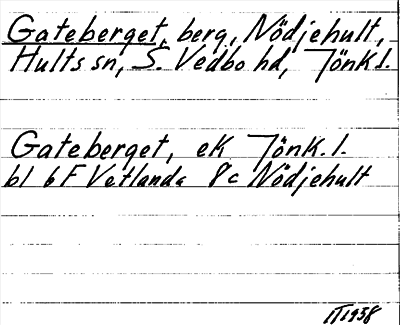 Gateberget, berg, Nödjehult,
Hults sn, S. Vedbo hd, Jönk l.
Gateberget, ek Jönk. l.
bl 6F Vetlanda 8c Nödjehult
1958